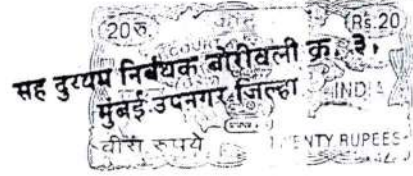 20रु.
Rs.20
COURT
सह दुय्यम निबंधक बोरीवली क्र. ३,
मुंबई उपनगर जिल्हा
INDIA
बीस रूपये
TWENTY RUPEES